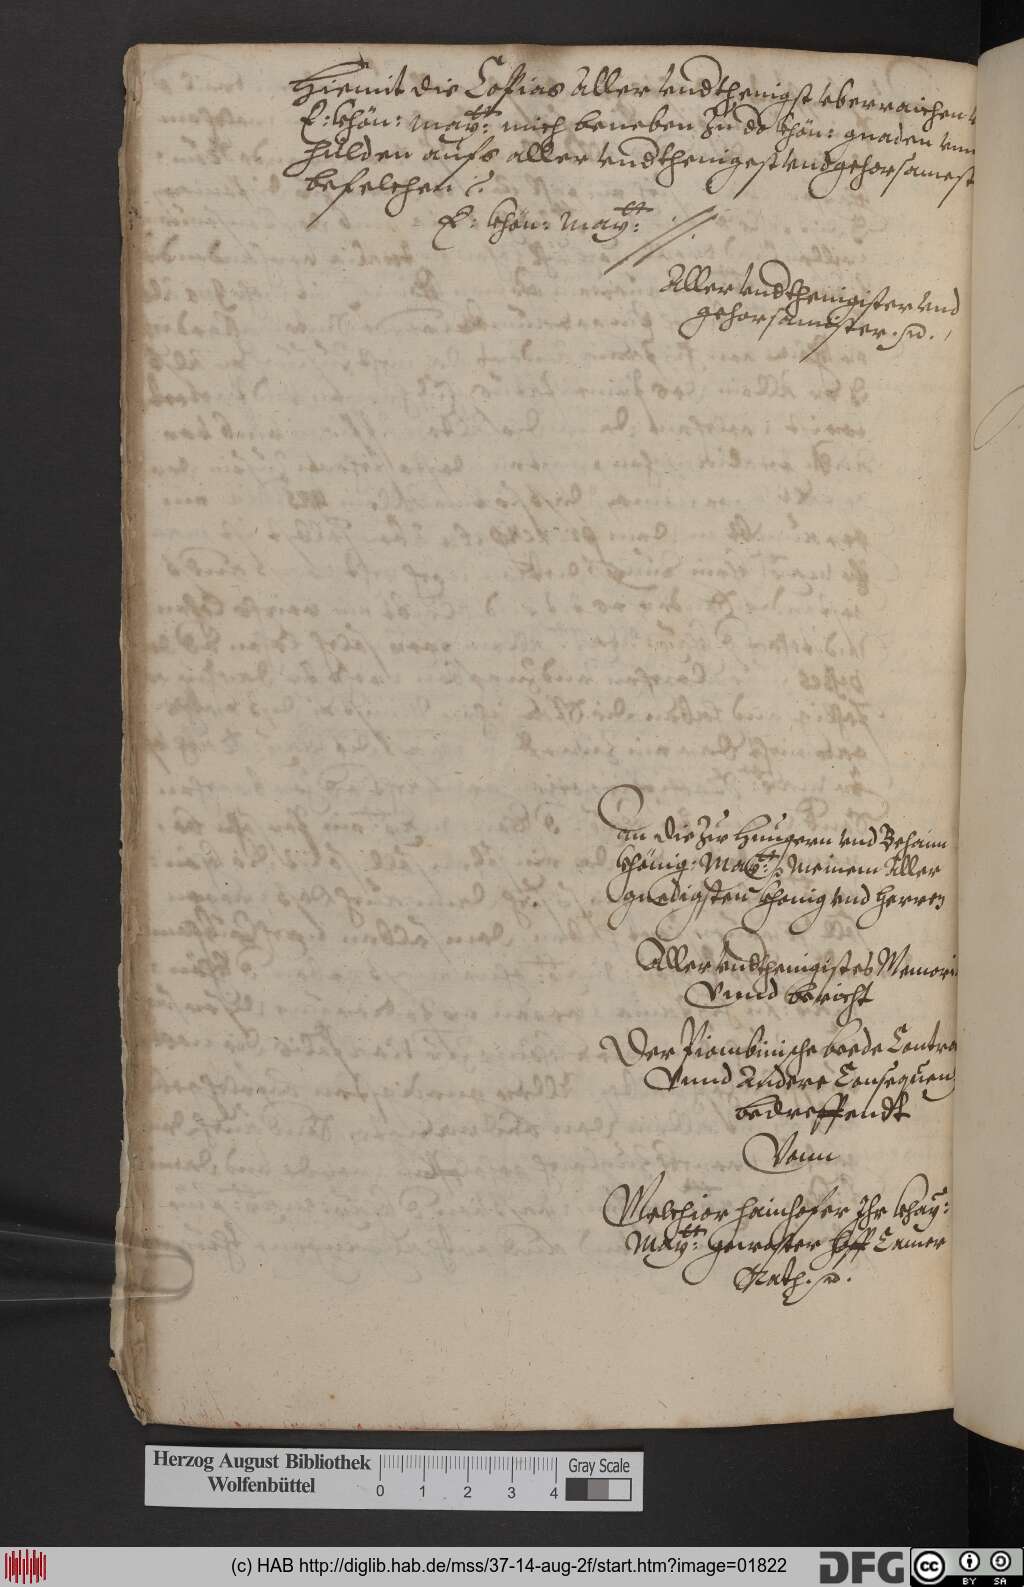 Hiemit die Coppias Aller Vndthenigst vberraichen
E: Khön: May:tt mich beneben Zu do Khön: gnaden vnn
hulden aufs aller vndthenigest Vnd gehorsamest
befelchen
E: Khön: May:tt
Aller Vndthenigister vnd
gehorsamister.
An die Zu Hungern vnd Behaim
Khönig: May:tt Meinem Aller
gnedigsten Khonig vnd Herren
Aller Vndthenigistes Memori
Vnnd bericht
Der Piombinische beede Contra
Vnnd Andere Consequen
bedreffendt
Vonn
Melchior Hainhofer Ihr Khay:
May:tt gewester Hoff Camer
Rath.
Herzog August Bibliothek
Wolfenbüttel
0 1 2 3 4
Gray Scale
(c) HAB http://diglib.hab.de/mss/37-14-aug-2f/start.htm?image=01822
DFG
cc BY SA